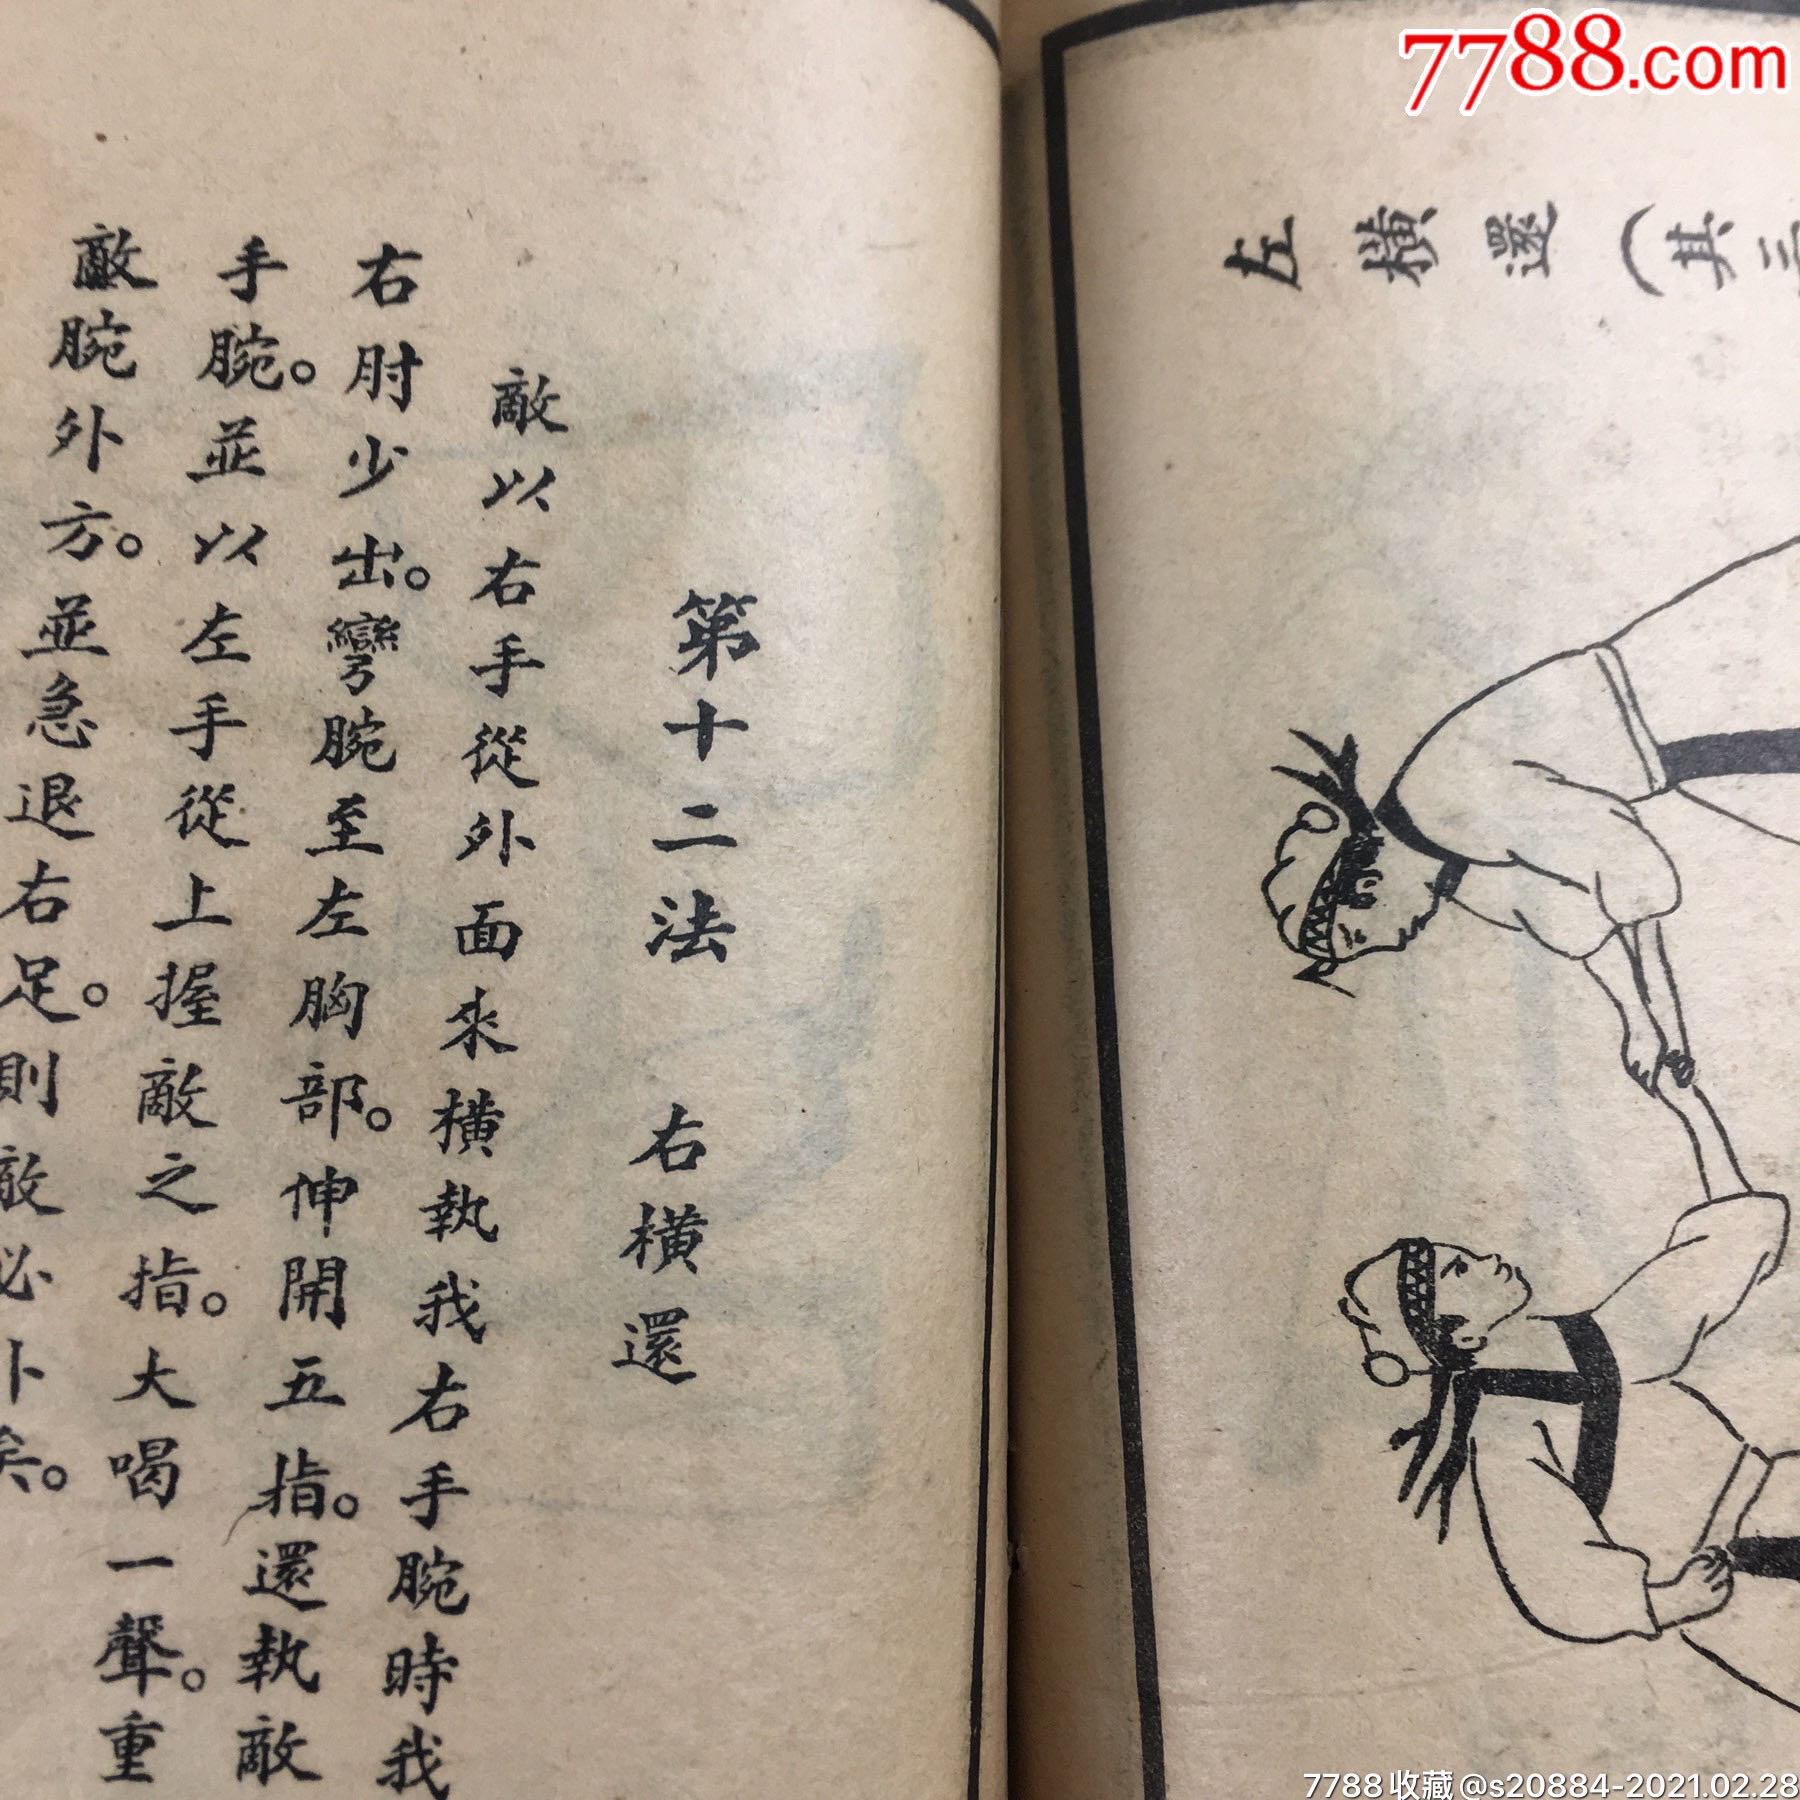 7788.com
左橫還(其三
第十二法 右橫還
敵以右手從外面來橫執我右手腕時我
右肘少出。彎腕至左胸部。伸開五指。還執敵
手腕。並以左手從上握敵之指。大喝一聲。重
敵腕外方。並急退右足。則敵必仆矣。
7788收藏@s20884-2021.02.28